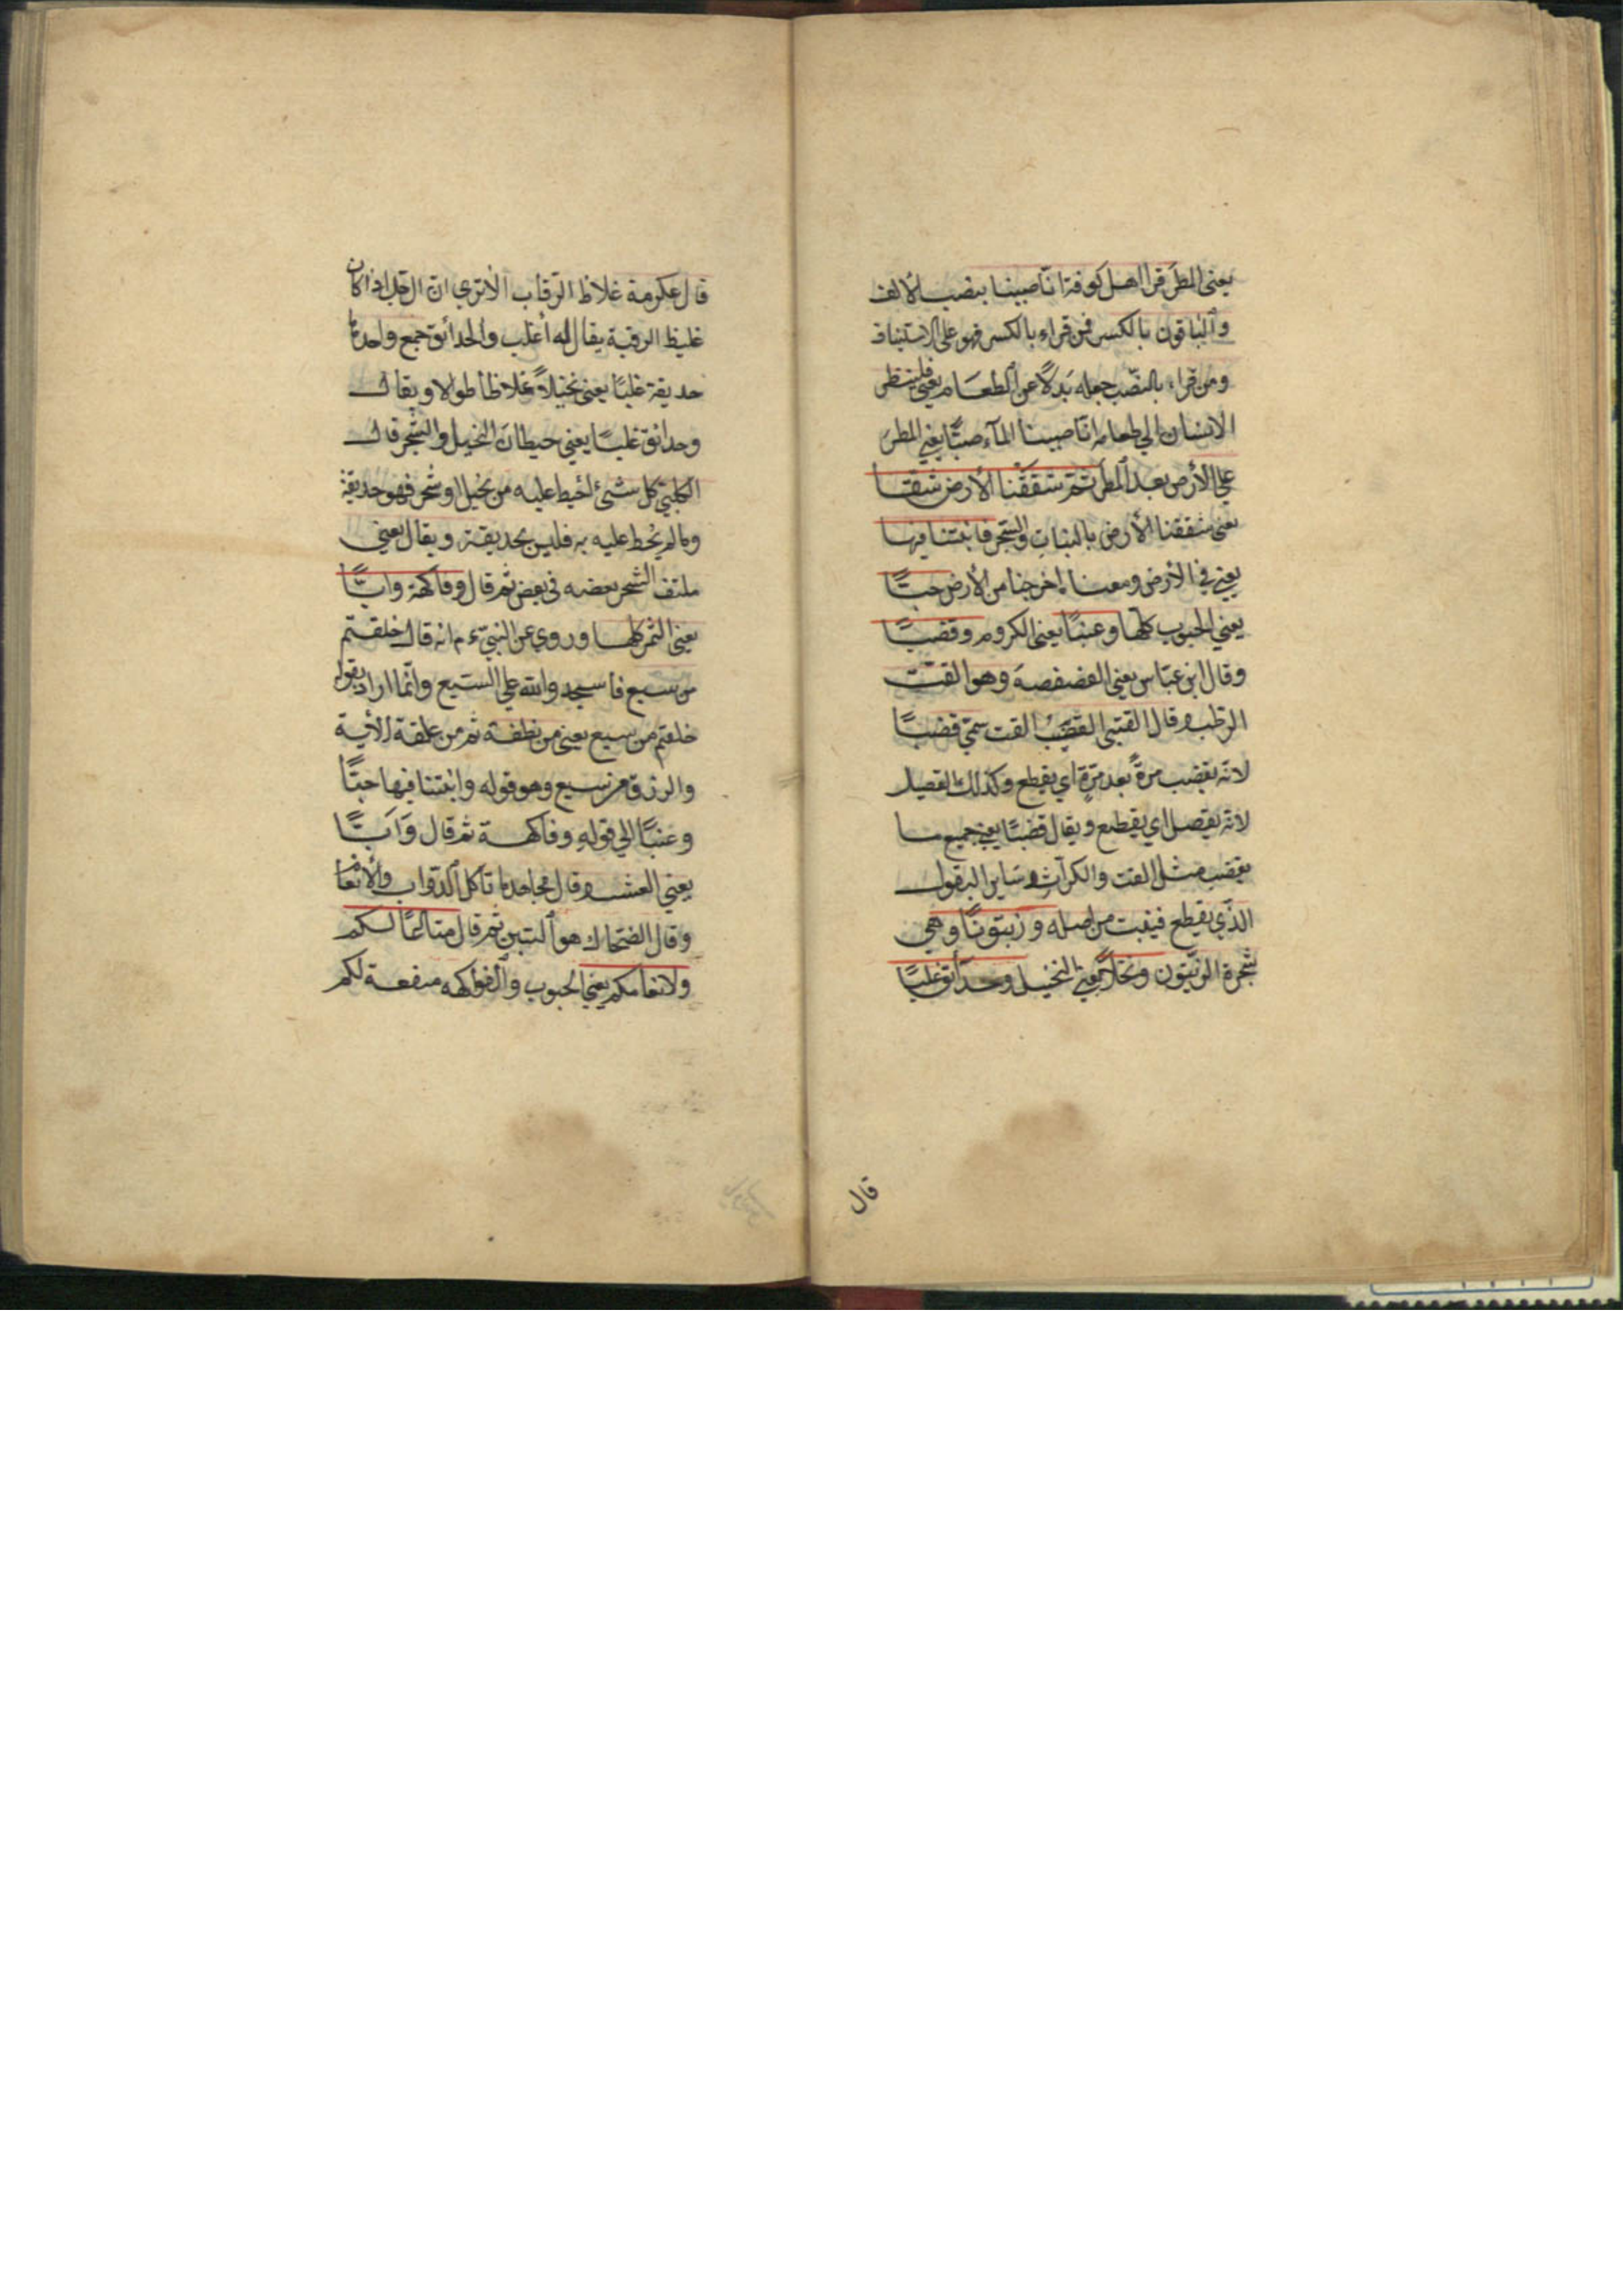 يعني المطر قرا اهل كوفة انّا صببنا بنصب الألف
وٱلباقون بالكسر فمن قراء بالكسر فهو على الاستيناف
ومن قراء بالنصّب جعله بَدلًا عن ٱلطعَام يعني فلينظر
الانسان الي طعامه انّا صببنا المآء صبًّا يعني المطر
علي الأرض بعد ٱلمطر ثمّ شققْنا الأرض شقّا
يعني شققنا الأرض بالنبات والشجر فانبتنا فيها
يعني في الأرض ومعناه اخرجنا من الأرض حبًّا
يعني الحبوب كلّها وعنبًا يعني الكروم وقضبًا
وقال ابن عبّاس يعني الفصفصة وهو القتّ
الرطب وقال القتبي القضب القت سمّي قضبًا
لانّه يقضب مرةً بعد مرّةٍ اي يقطع وكذلك القصيل
لانّه يقصل اي يقطع ويقال قضبًا يعني جميع ما
يقضب مثل القت والكرّاث وسَاير البقول
الذّي يقطع فينبت من اصله وزيتونًا وهي
شجرة الزيّتون ونخلًا يعني النخيل وحدآئق غلبًا
قال
قال عكرمة غلاظ الرّقاب الأتري انّ الرّجل اذا كان
غليظ الرقبة يقال له أغلب والحدائق جمع واحدها
حديقة غلبًا يعني نخيلاً غلاظا طوالا ويقال
وحدائق غلبًا يعني حيطانَ النخيل والشجر قال
الكلبيّ كل شئ أحيط عليه من نخيل او شجر فهو حديقة
وما لم يُحط عليه به فليس بحديقة ويقال يعني
ملتف الشجر بعضه في بعض ثم قال وفاكهة وابًّا
يعني الثمر كلها وروي عن النبيّ ءم انه قال خلقتم
من سبع فاسجدوا لله علي السّبع وانّما اراد بقوله
خلقتم من سبع يعني من نطفة ثم من علقة الأية
والرزق من سبع وهو قوله وانبتنا فيها حبًّا
وعنبًا الي قوله وفاكهة ثم قال وَابًّا
يعني العشب وقال مجاهد ما تأكل ٱلدّواب والأنعام
وقال الضحّاك هو ٱلتبن ثم قال متاعًا لكم
ولانعامكم يعني الحبوب وٱلفواكه منفعة لكم